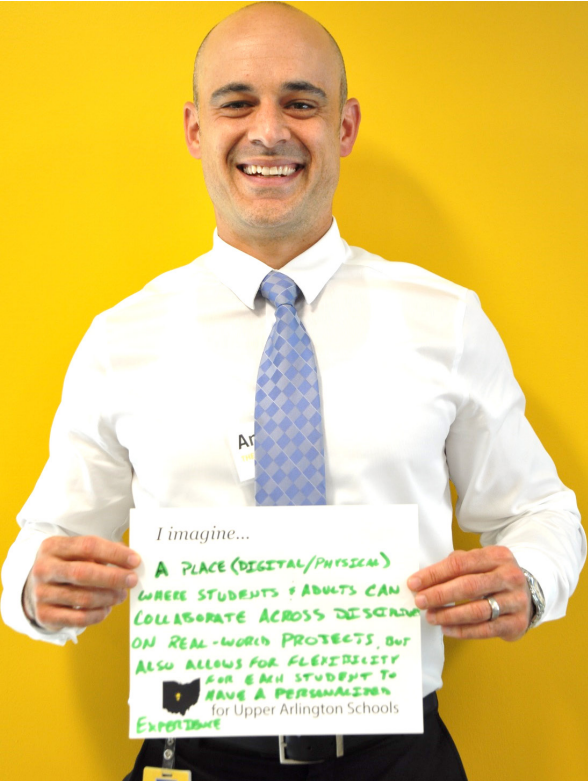 Ar
I imagine...
A PLACE (DIGITAL/PHYSICAL)
WHERE STUDENTS & ADULTS CAN
COLLABORATE ACROSS DISCIPLINE
ON REAL-WORLD PROJECTS, BUT
ALSO ALLOWS FOR FLEXIBILITY
FOR EACH STUDENT TO
HAVE A PERSONALIZED
for Upper Arlington Schools
EXPERIENCE